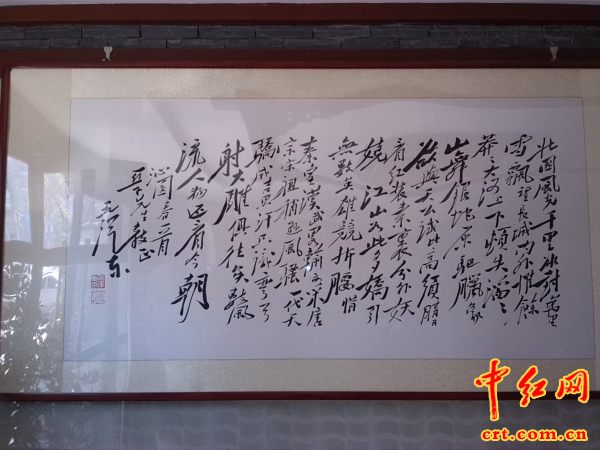 北国风光千里冰封万里
雪飘望长城内外惟余
莽莽大河上下顿失滔滔
山舞银蛇原驱腊象
欲与天公试比高须晴
看红装素裹分外妖
娆江山如此多娇引
无数英雄竞折腰惜
秦皇汉武略输文采唐
宗宋祖稍逊风骚一代天
骄成吉思汗只识弯弓
射大雕俱往矣数风
流人物还看今朝
沁园春一首
先生教正
毛泽东
中红网
crt.com.cn